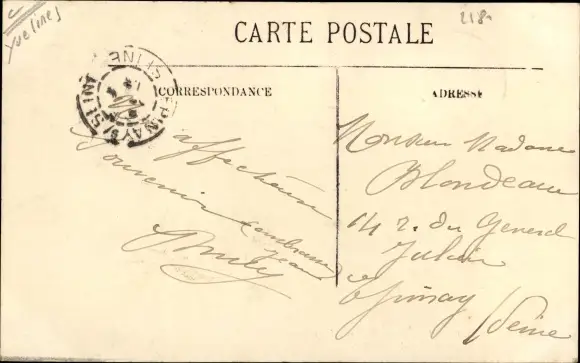 Yvelines
218
CARTE POSTALE
CORRESPONDANCE
ADRESSE
EPINAY S/ SEINE
SEINE
affectueux
Souvenir
embrassez
Jean
Monsieur Madame
Blondeau
14 r. du General
Julien
Epinay
/Seine